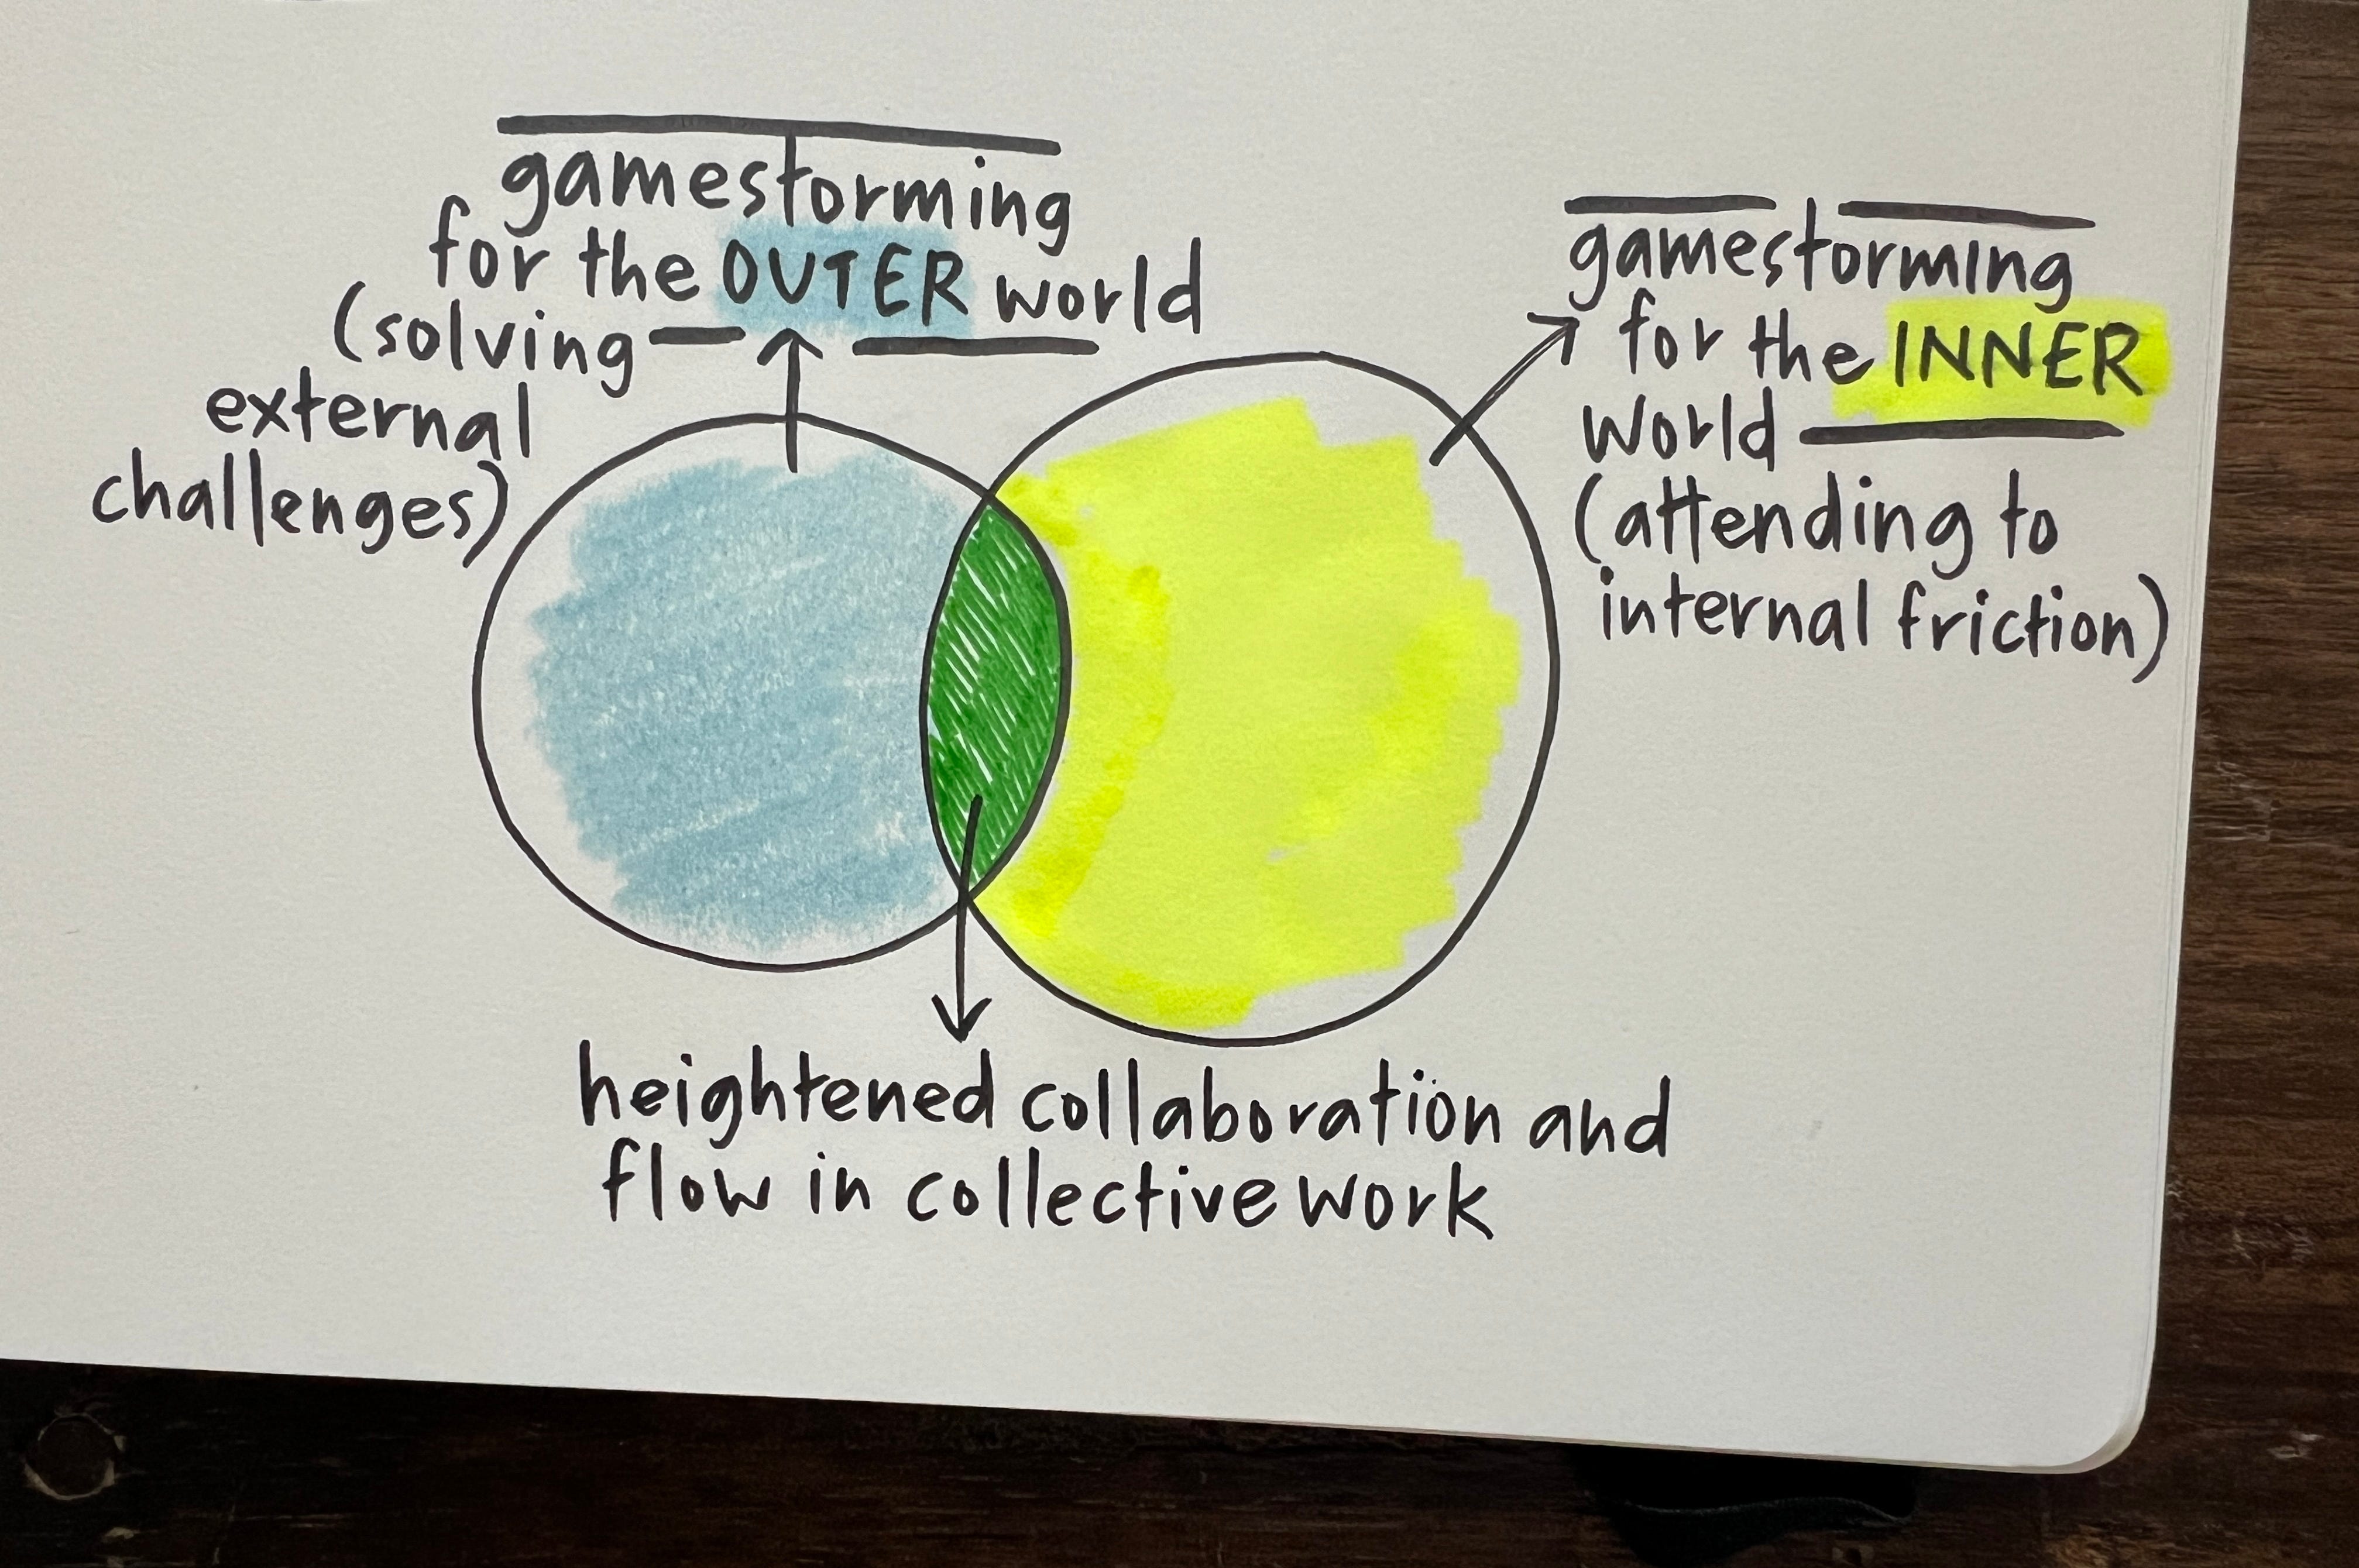 gamestorming
for the OUTER world
(solving
external
challenges)
gamestorming
for the INNER
world
(attending to
internal friction)
heightened collaboration and
flow in collective work